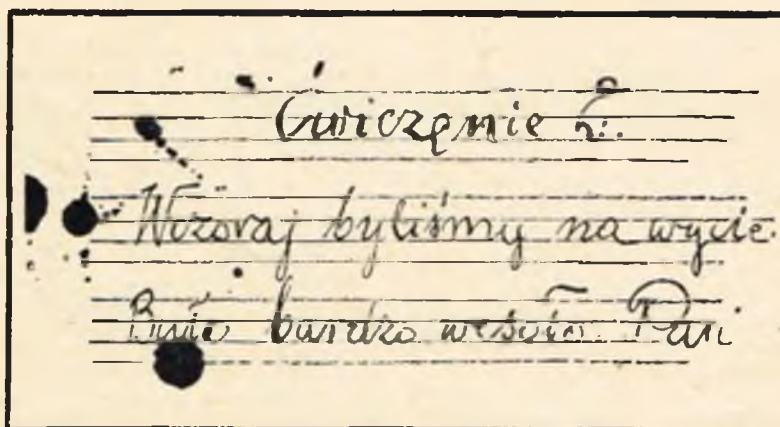 Ćwiczęnie 5.
Wczoraj byliśmy na wycie-
bardzo wesoło. Pani